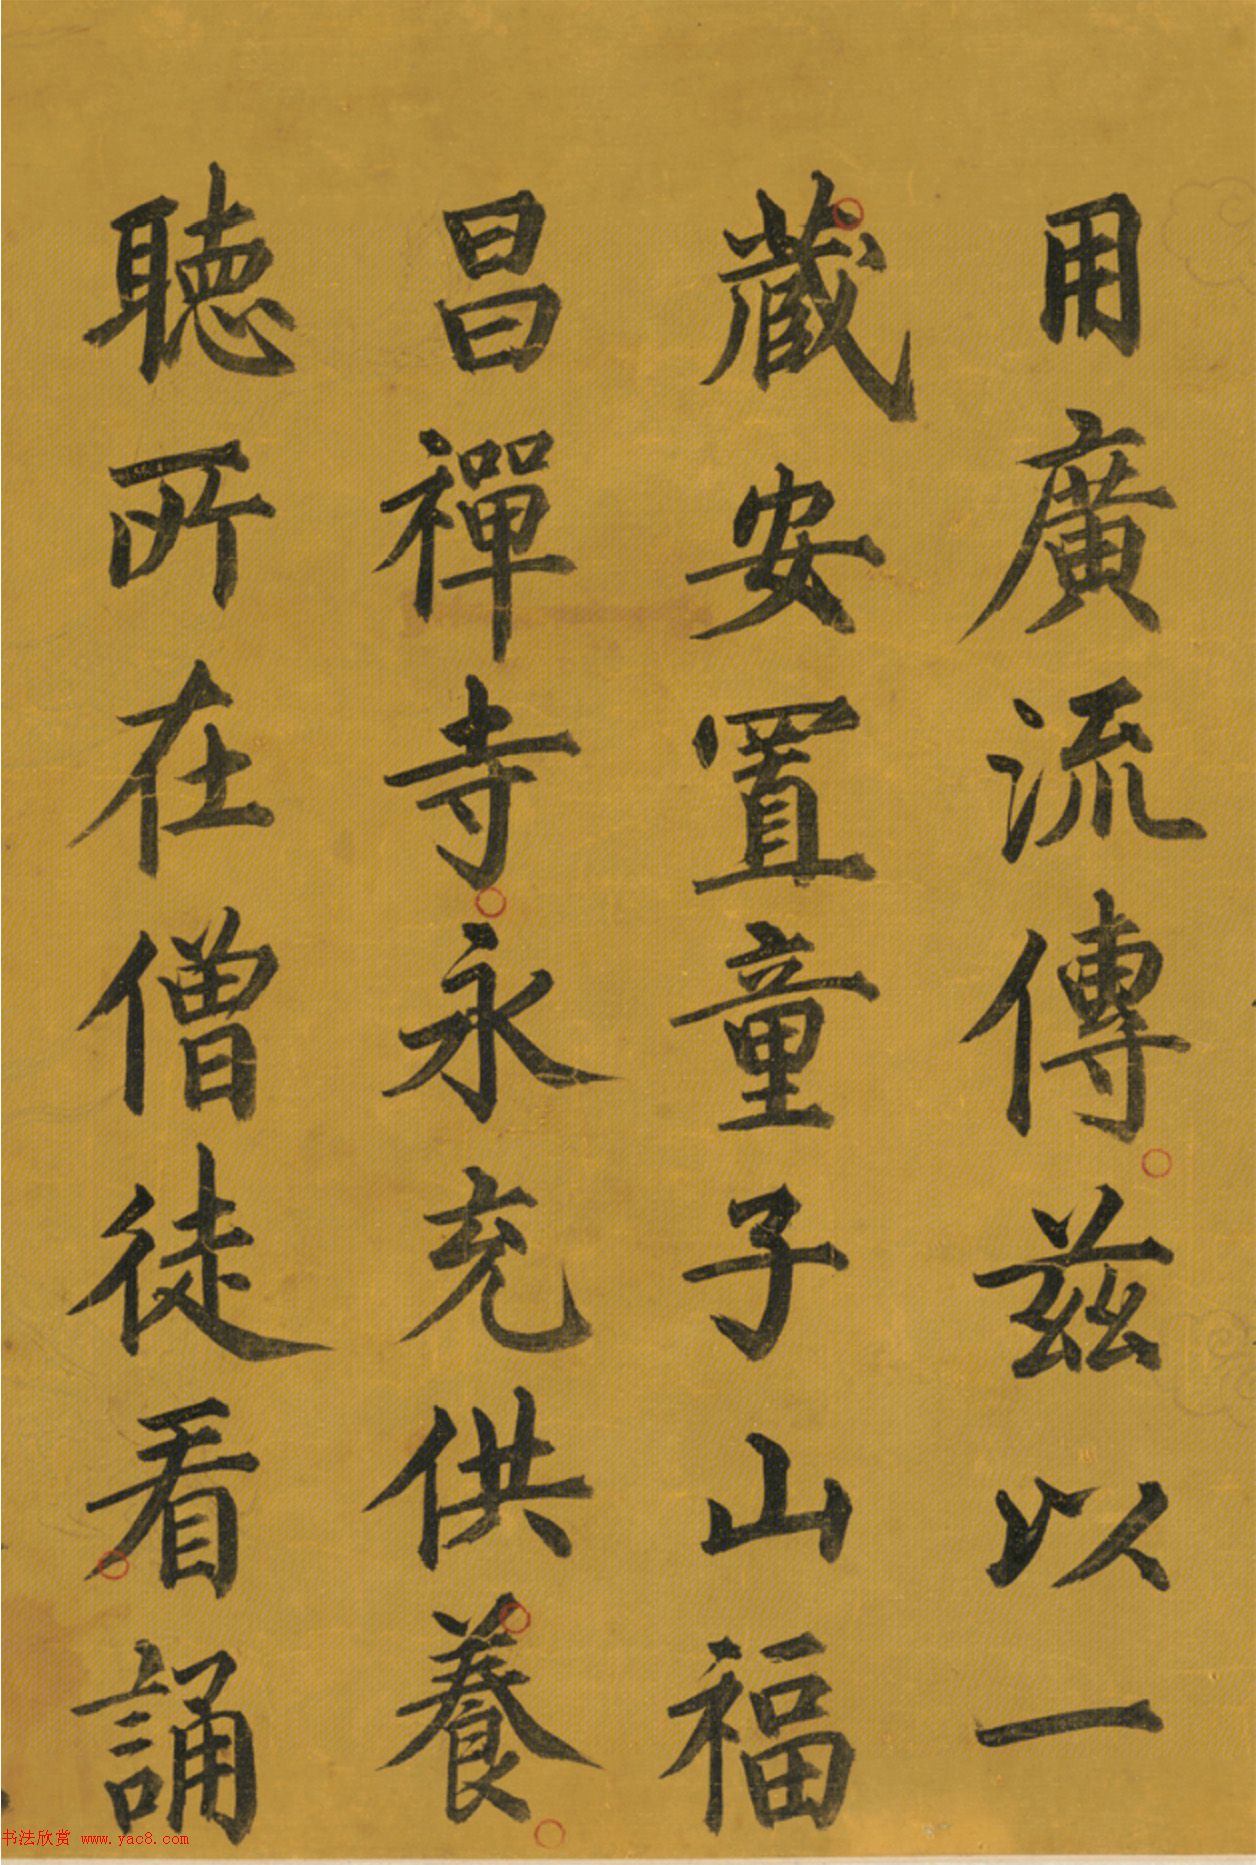 用廣流傳茲以一
藏安置童子山福
昌禪寺永充供養
聽所在僧徒看誦
书法欣赏 www.yac8.com